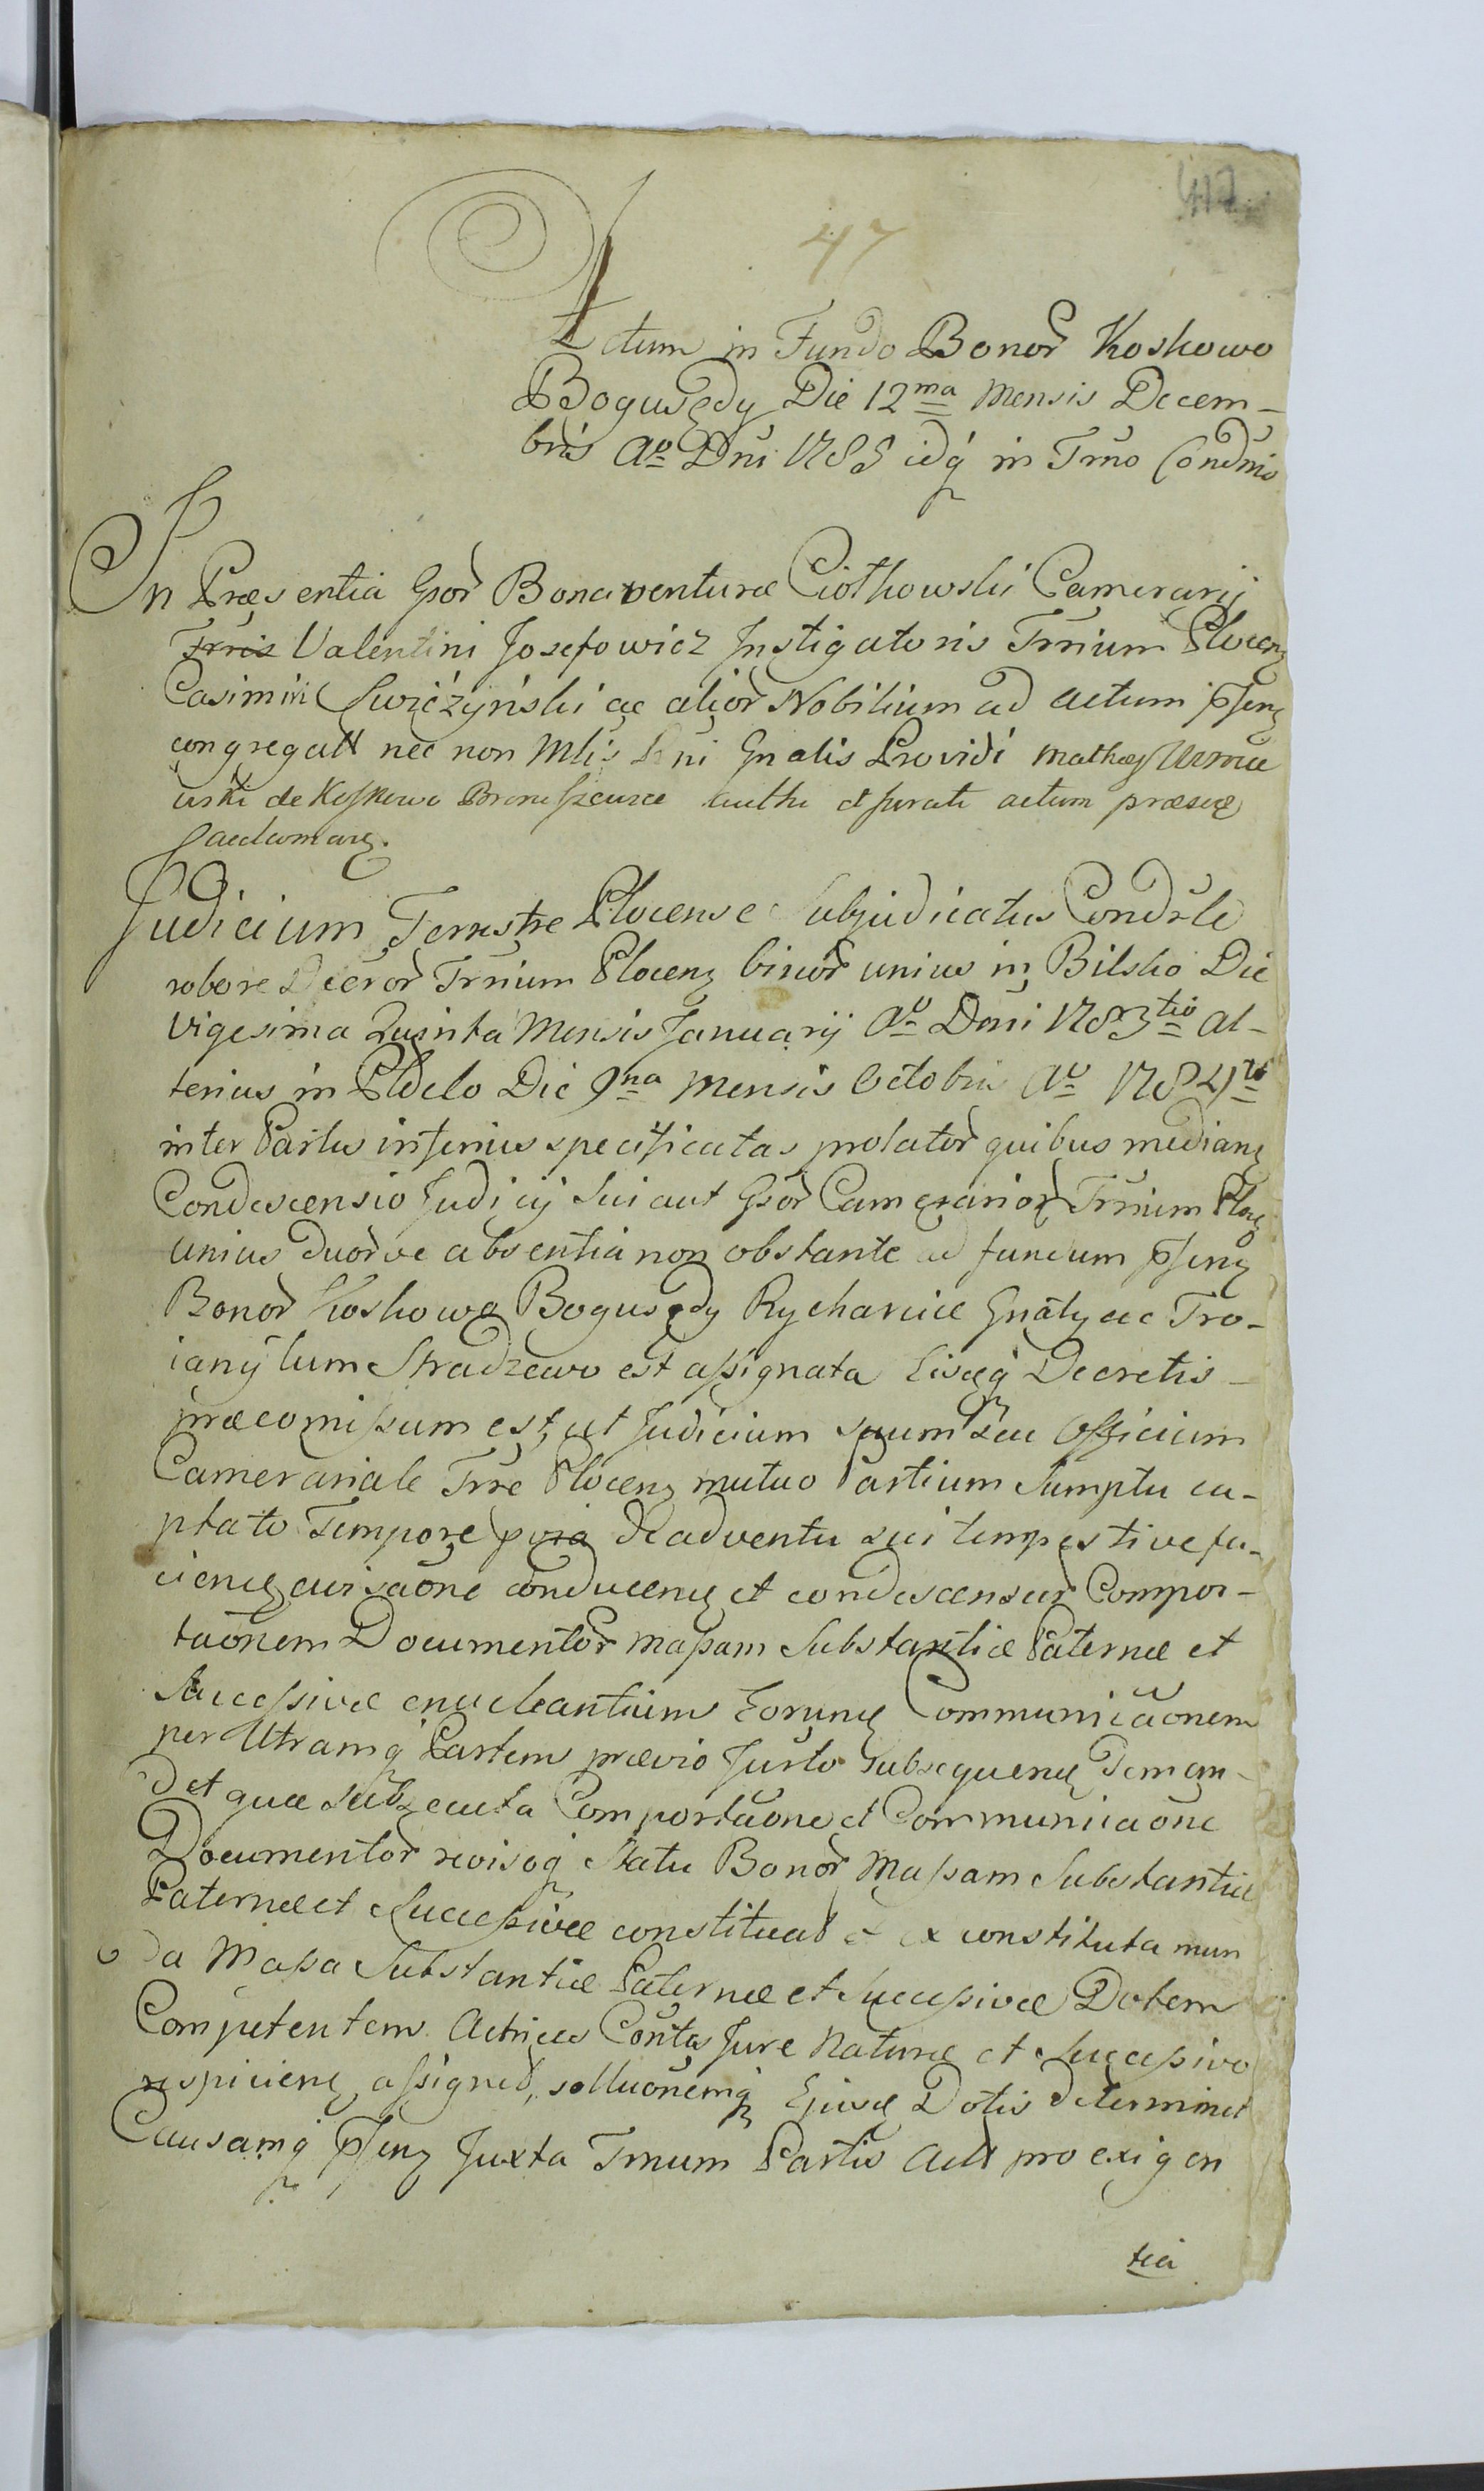 47
Actum in Fundo Bonor Koskowo
Bogusędy Die 12ma Mensis Decem-
bris Ao Dni 1785 idq in Trno Condnis
In Præsentia Gsor Bonaventuræ Ciotkowski Camerarij
Trris Valentini Josefowicz Instigatoris Trrium Plocens
Casimiri Swiczyński ac alior Nobilium ad actum psens
congregatt nec non Mlis Dni Gnalis Providi Mathæi
de Koskowo et jurati actum præsens
Judicium Terrestre Plocense Subjudicatus Condsle
robore Decror Trrium Plocens binor unius in Bilsko Die
Vigesima Quinta Mensis Januarij Ao Dni 1783tio al-
terius in Die 9na Mensis Octobris Ao 1784to
inter Partes inferius specificatas prolator quibus medians
Condescensio Judicij Sui aut Gsor Camerarior Trrium Ploc
unius duorve absentia non obstante ad fundum psens
Bonor Koskowo Bogusędy Rycharcice Gnaly ac Tro-
iany tum Stradzewo est assignata Eisdq Decretis
præcomissum est, ut Judicium suum seu Officium
Camerariale Trre Plocens mutuo Partium Sumptu ca-
ptato Tempore præa de adventu sui tempestive fa-
ciend avisaone conducens et condescensur Compor-
taonem Documentor massam Substantiæ Paternæ et
Successivæ enucleantium Eorund Communicaonem
per Utramq Partem prævio Jurto Subsequens Deman-
det qua subsecuta Comportaone et Communicaone
Documentor revisoq Statu Bonor Massam Substantiæ
Paternæ et Successivæ constituat et ex constituta mun
da Massa Substantiæ Paternæ et Successivæ Dotem
Competentem Actrices Contas Jure Naturæ et Successivo
respiciens assignet, solluonemq Ejusd Dotis determinet
Causamq psens Juxta Trnum Partis Actt pro exigen
tia